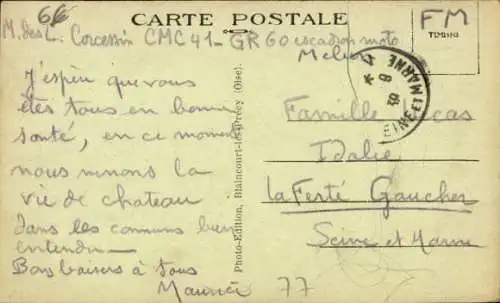 66
CARTE POSTALE
M. des L. Corcessin CMC 41 - GR 60 escadron moto
Melun
FM
TIMBRE
J'espère que vous
êtes tous en bonne
santé, en ce moment
nous menons la
vie de chateau
dans les comuns bien
entendu —
Bons baisers à tous
Maurice
Photo-Edition, Blaincourt-les-Précy (Oise).
SEINE ET MARNE
Famille
Idalie
la Ferté Gaucher
Seine et Marne
77